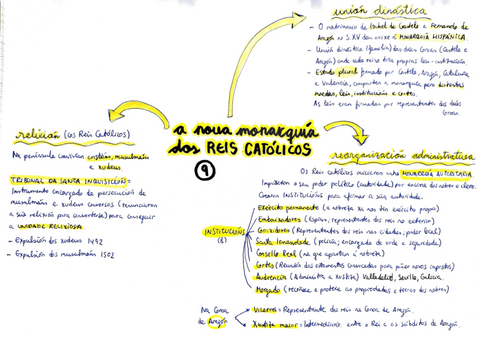 unión dinástica
- O matrimonio de Isabel de Castela e Fernando de
Aragón no S.XV dan orixe á MONARQUÍA HISPÁNICA.
- Unión dinástica (familia) das dúas Coroas (Castela e
Aragón) onde cada reino tiña propias leis e institucións.
- Estado plural formado por Castela, Aragón, Cataluña
e Valencia, comparten a monarquía pero distintas
moedas, leis, institucións e cortes.
As leis eran firmadas por representantes das dúas
Coroas
a nova monarquía
dos REIS CATÓLICOS
9
relixión (os Reis Católicos)
Na península convivían cristiáns, musulmáns
e xudeus.
TRIBUNAL DA SANTA INQUISICIÓN =
Instrumento encargado da persecución de
musulmáns e xudeus conversos (renunciaron
a súa relixión para converterse) para conseguir
a UNIDADE RELIXIOSA
- Expulsión dos xudeus 1492
- Expulsión dos musulmáns 1502
reorganización administrativa
Os Reis Católicos iniciaron unha MONARQUÍA AUTORITARIA
Impuxeron o seu poder político (autoridade) por encima dos nobres e clero.
Crearon INSTITUCIÓNS para afirmar a súa autoridade.
INSTITUCIÓNS
(8)
Exército permanente (a nobreza xa non ten exército propio)
Embaixadores (Espías, representantes dos reis no exterior)
Corrixidores (Representantes dos reis nas cidades, poder local)
Santa Irmandade (policía, encargada da orde e seguridade)
Consello Real (na que apartan á nobreza)
Cortes (Reunión dos estamentos convocadas para pór novos impostos)
Audiencia (Administra a xustiza) Valladolid, Sevilla, Galicia.
Morgado (recoñece e protexe as propiedades e terras dos nobres)
Na Coroa
de Aragón
Vicerrei = Representante dos reis na Coroa de Aragón.
Xustiza maior = Intermediario entre o Rei e os súbditos de Aragón.